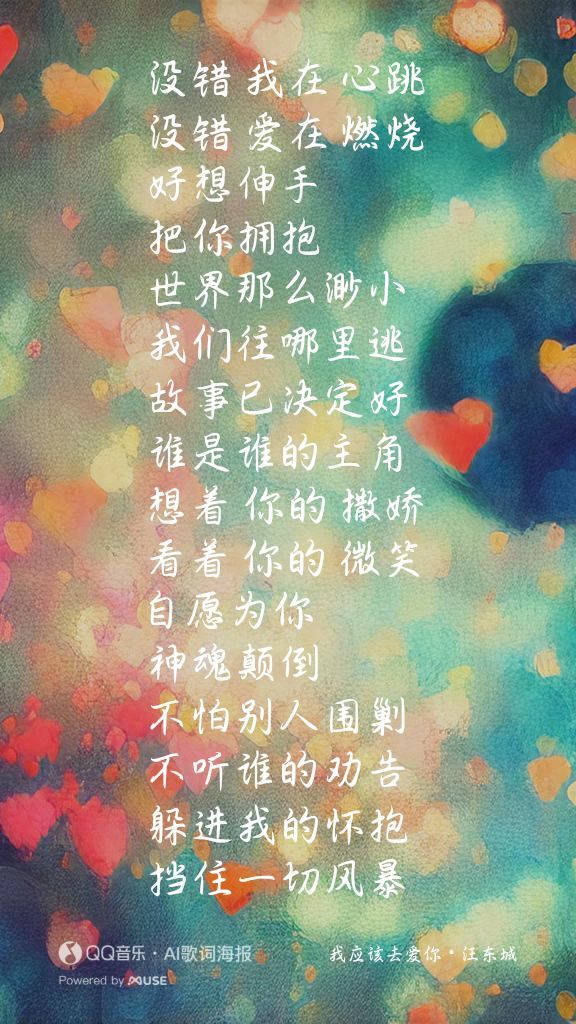 没错 我在 心跳
没错 爱在 燃烧
好想伸手
把你拥抱
世界那么渺小
我们往哪里逃
故事已决定好
谁是谁的主角
想着 你的 撒娇
看着 你的 微笑
自愿为你
神魂颠倒
不怕别人围剿
不听谁的劝告
躲进我的怀抱
挡住一切风暴
QQ音乐·AI歌词海报
我应该去爱你·汪东城
Powered by MUSE